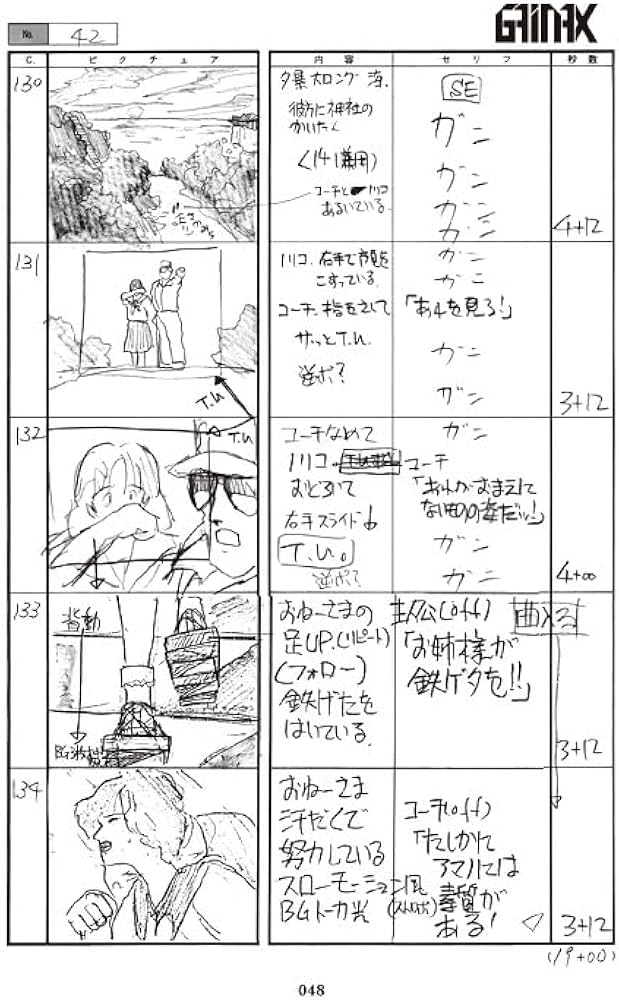 GAINAX
No. 42
C. ピクチュア 内容 セリフ 秒数
130
夕景 大ロング 海.
彼方に神社の
かいだく
(141兼用)
コーチと ノリコ
あるいている.
SE
ガニ
ガニ
ガニ
ガニ
4+12
131
T.U
ノリコ. 右手で
こすっている.
コーチ. 指をさして
サッとT.U.
逆ポ?
ガニ
ガニ
「あれを見ろ!」
ガニ
ガニ
3+12
132
T.U
コーチなめて
ノリコ
おどろいて
右手スライド
T.U.
逆ポ?
ガニ
コーチ
ガニ
ガニ
4+00
133
指動
おねーさまの
足UP.(リピート)
(フォロー)
鉄げたを
はいている.
(off)
「お姉様が
鉄ゲタを!!」
曲入る
3+12
134
おねーさま
汗だくで
努力している
スローモーション風
BGトーカ光
(ストロボ)
コーチ(off)
「たしかに
アマノには
素質が
ある!
3+12
(19+00)
048